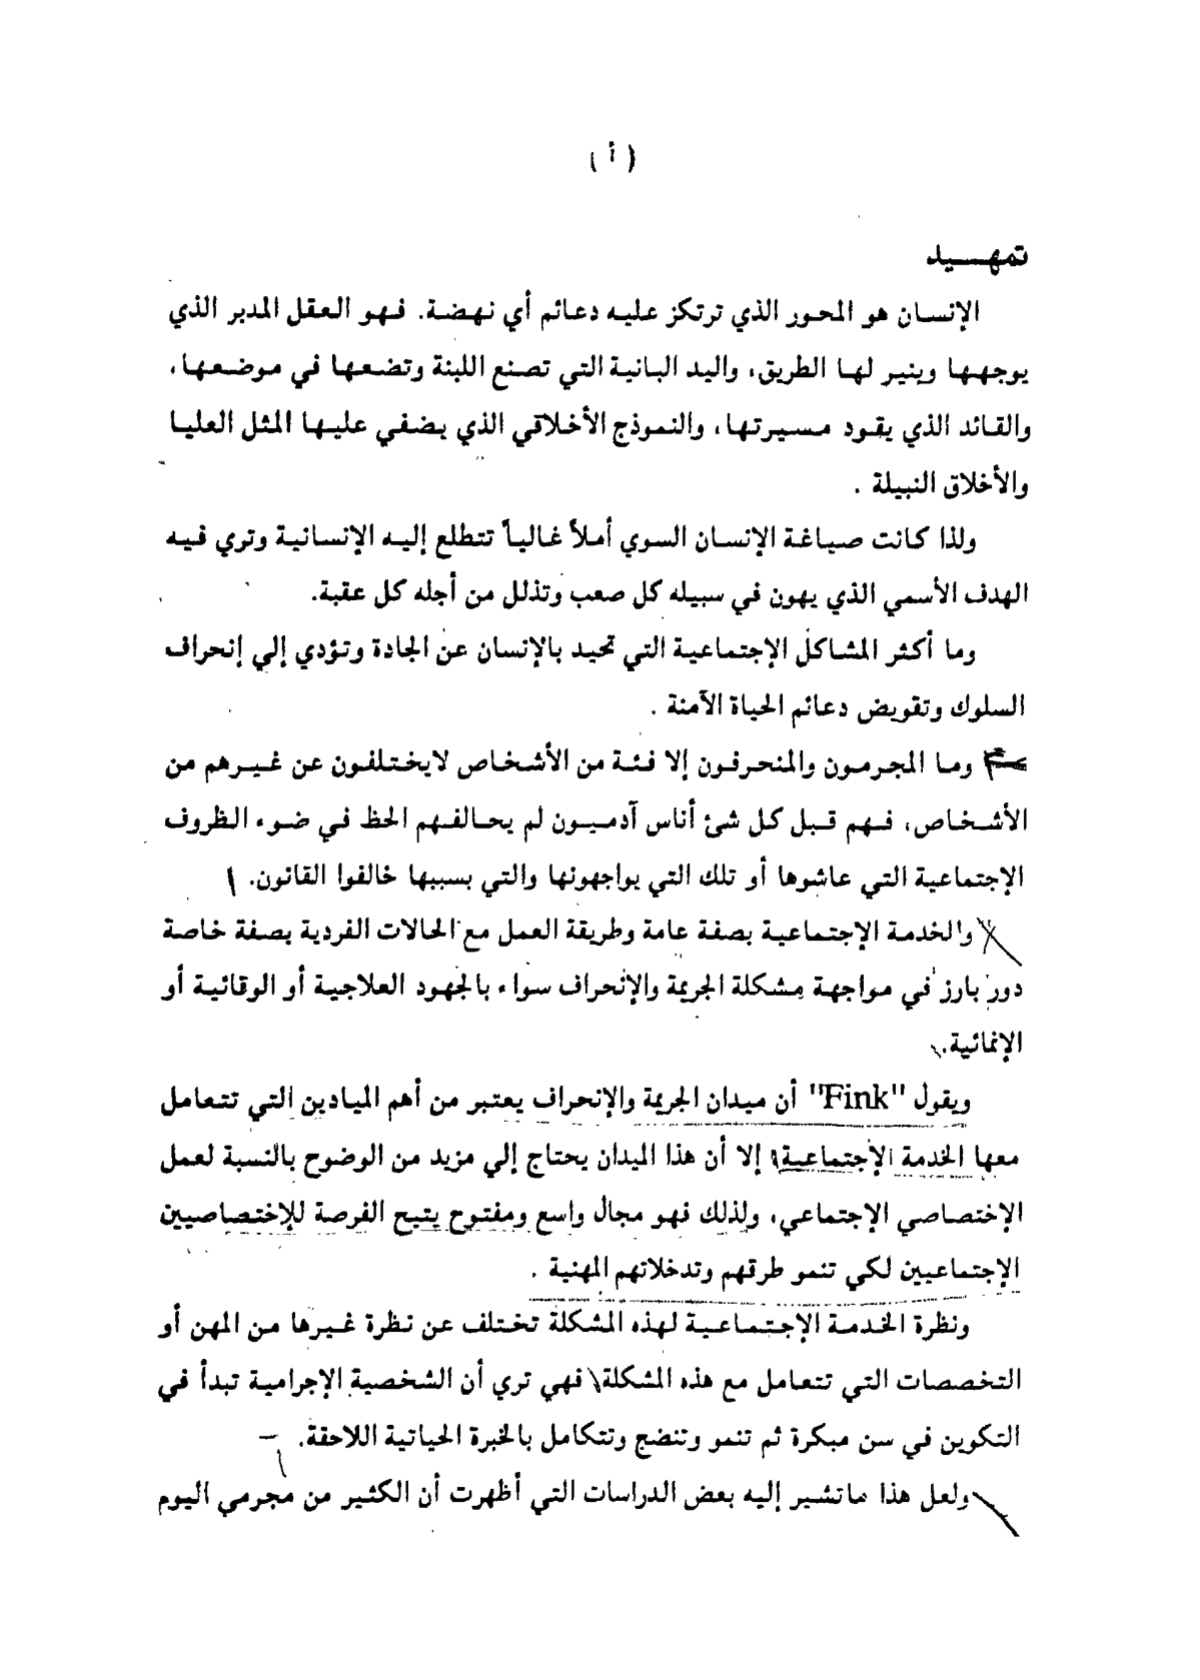 ( أ )
تمهـــيد
الإنسان هو المحور الذي ترتكز عليه دعائم أي نهضة. فهو العقل المدبر الذي
يوجهها وينير لها الطريق، واليد البانية التي تصنع اللبنة وتضعها في موضعها،
والقائد الذي يقود مسيرتها، والنموذج الأخلاقي الذي يضفي عليها المثل العليا
والأخلاق النبيلة .
ولذا كانت صياغة الإنسان السوي أملاً غالياً تتطلع إليه الإنسانية وتري فيه
الهدف الأسمي الذي يهون في سبيله كل صعب وتذلل من أجله كل عقبة.
وما أكثر المشاكل الإجتماعية التي تحيد بالإنسان عن الجادة وتؤدي إلي إنحراف
السلوك وتقويض دعائم الحياة الآمنة .
وما المجرمون والمنحرفون إلا فئة من الأشخاص لايختلفون عن غيرهم من
الأشخاص، فهم قبل كل شئ أناس آدميون لم يحالفهم الحظ في ضوء الظروف
الإجتماعية التي عاشوها أو تلك التي يواجهونها والتي بسببها خالفوا القانون.
والخدمة الإجتماعية بصفة عامة وطريقة العمل مع الحالات الفردية بصفة خاصة
دور بارز في مواجهة مشكلة الجريمة والإنحراف سواء بالجهود العلاجية أو الوقائية أو
الإنمائية.
ويقول "Fink" أن ميدان الجريمة والإنحراف يعتبر من أهم الميادين التي تتعامل
معها الخدمة الإجتماعية، إلا أن هذا الميدان يحتاج إلي مزيد من الوضوح بالنسبة لعمل
الإختصاصي الإجتماعي، ولذلك فهو مجال واسع ومفتوح يتيح الفرصة للإختصاصيين
الإجتماعيين لكي تنمو طرقهم وتدخلاتهم المهنية .
ونظرة الخدمة الإجتماعية لهذه المشكلة تختلف عن نظرة غيرها من المهن أو
التخصصات التي تتعامل مع هذه المشكلة، فهي تري أن الشخصية الإجرامية تبدأ في
التكوين في سن مبكرة ثم تنمو وتنضج وتتكامل بالخبرة الحياتية اللاحقة.
ولعل هذا ماتشير إليه بعض الدراسات التي أظهرت أن الكثير من مجرمي اليوم